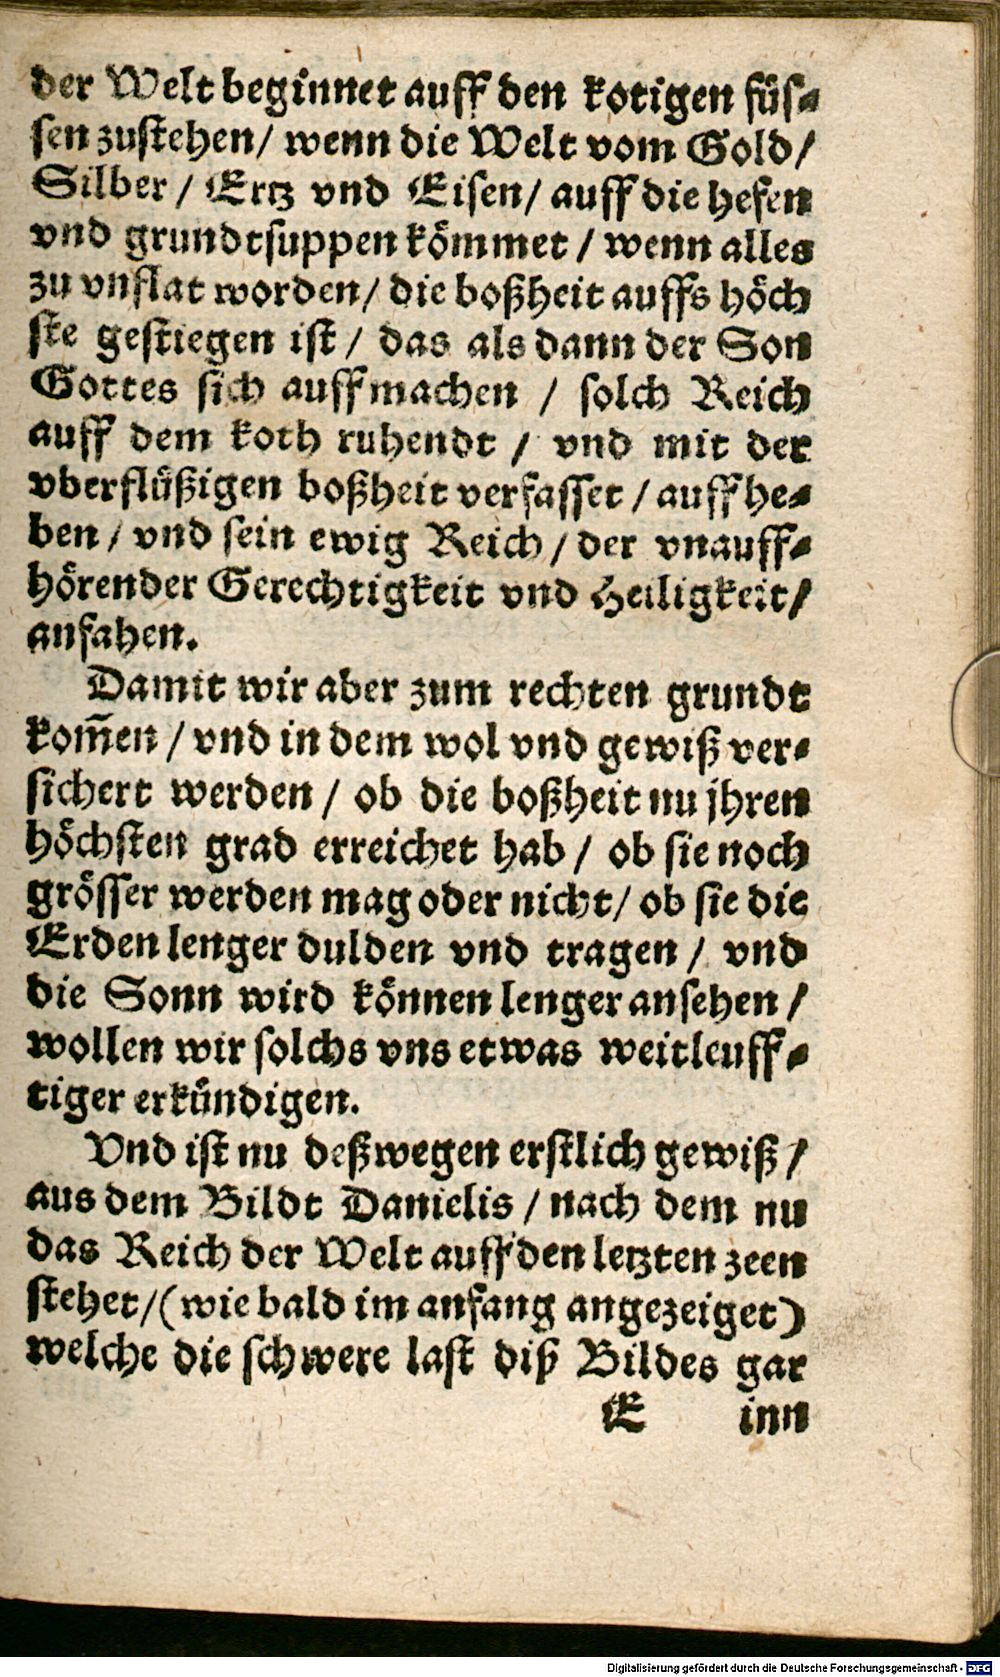 der Welt beginnet auff den kotigen füs-
sen zustehen/ wenn die Welt vom Gold/
Silber/ Ertz vnd Eisen/ auff die hefen
vnd grundtsuppen kömmet/ wenn alles
zu vnflat worden/ die boßheit auffs höch
ste gestiegen ist/ das als dann der Son
Gottes sich auffmachen / solch Reich
auff dem koth ruhendt / vnd mit der
vberflüßigen boßheit verfasset/ auffhe-
ben/ vnd sein ewig Reich/ der vnauff-
hörender Gerechtigkeit vnd Heiligkeit/
anfahen.
Damit wir aber zum rechten grundt
kom̃en/ vnd in dem wol vnd gewiß ver-
sichert werden/ ob die boßheit nu jhren
höchsten grad erreichet hab/ ob sie noch
grösser werden mag oder nicht/ ob sie die
Erden lenger dulden vnd tragen/ vnd
die Sonn wird können lenger ansehen/
wollen wir solchs vns etwas weitleuff-
tiger erkündigen.
Vnd ist nu deßwegen erstlich gewiß/
aus dem Bildt Danielis/ nach dem nu
das Reich der Welt auff den letzten zeen
stehet/(wie bald im anfang angezeiget)
welche die schwere last diß Bildes gar
E inn
Digitalisierung gefördert durch die Deutsche Forschungsgemeinschaft - DFG